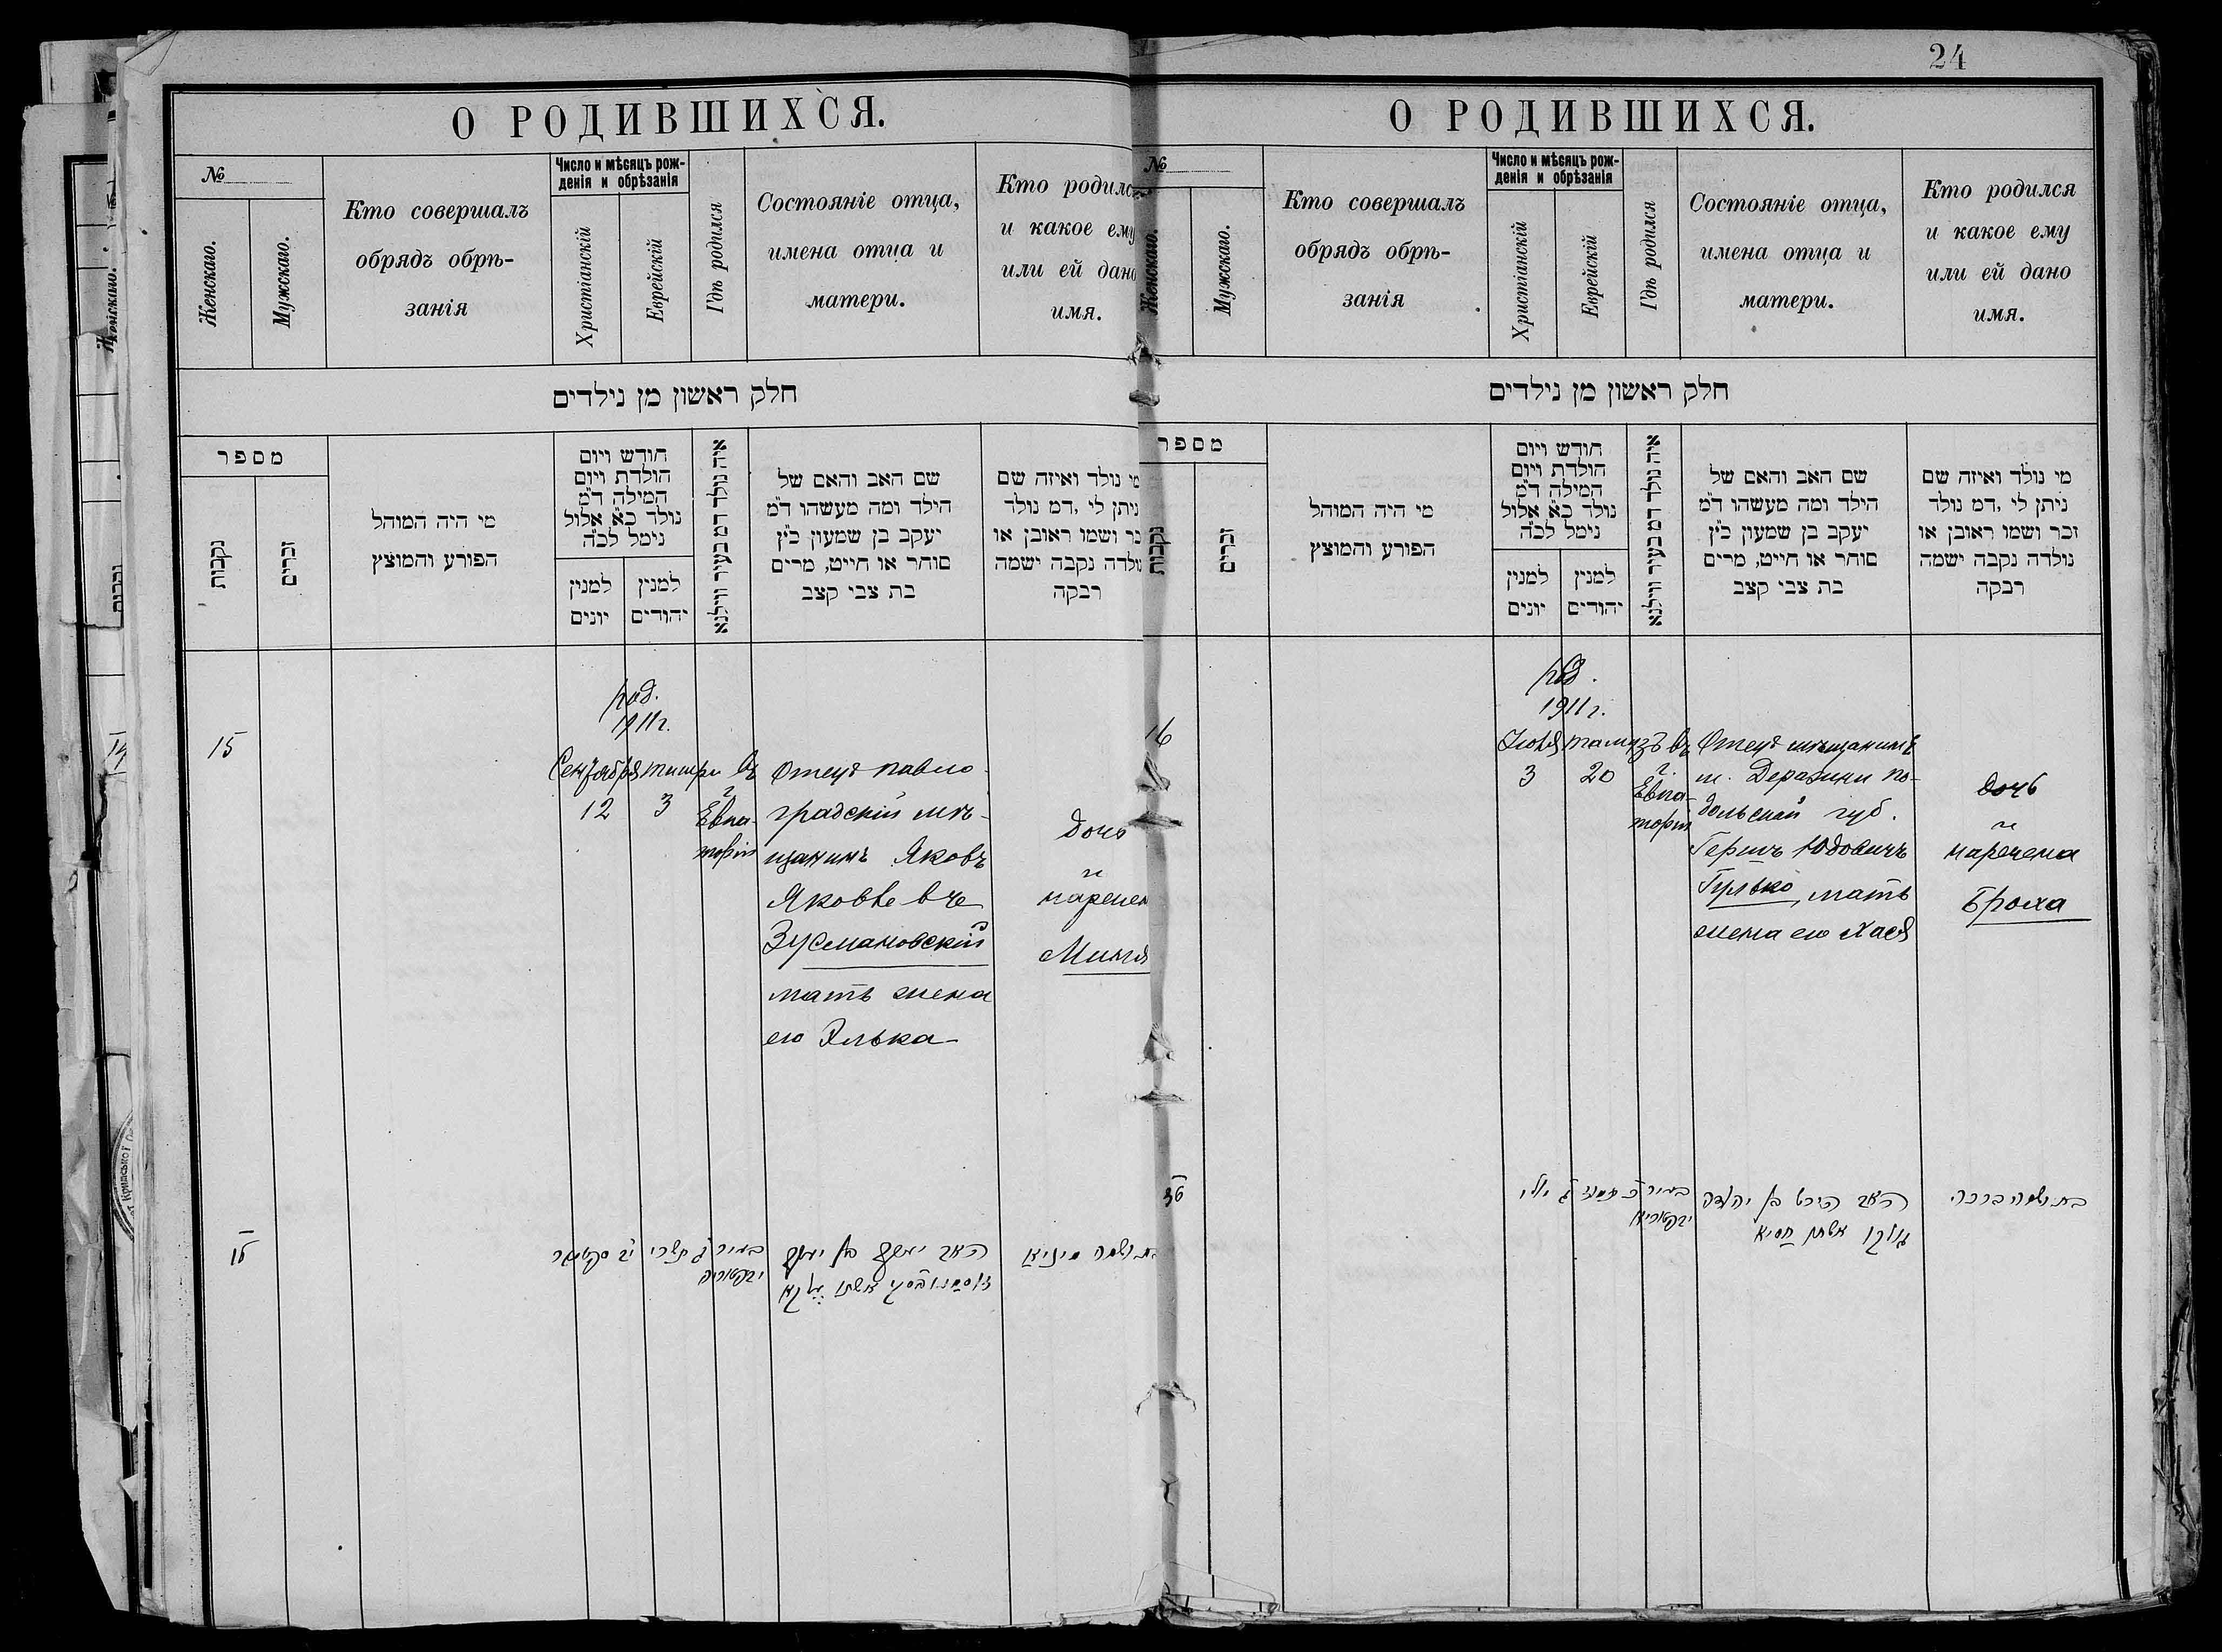 24
О РОДИВШИХСЯ.
№
Женскаго.
Мужскаго.
Кто совершалъ
обрядъ обрѣ-
занія
Число и мѣсяцъ рож-
денія и обрѣзанія
Христіанскій
Еврейскій
Гдѣ родился
Состояніе отца,
имена отца и
матери.
Кто родилс
и какое ему
или ей дано
имя.
חלק ראשון מן נילדים
מספר
נקבות
זכרים
מי היה המוהל
הפורע והמוצץ
חודש ויום
הולדת ויום
המילה ד״מ
נולד כ״א אלול
נימל לכ״ה
למנין
יונים
למנין
יהודים
איה נולד דמ בעיר ווילנא
שם האב והאם של
הילד ומה מעשהו ד״מ
יעקב בן שמעון כ״ץ
סוחר או חייט, מרים
בת צבי קצב
מי נולד ואיזה שם
ניתן לי, דמ נולד
זכר ושמו ראובן או
נולדה נקבה ישמה
רבקה
15
род.
1911 г.
Сентября тишри въ
12 3
г.
Евпа-
торіи
Отецъ павло-
градскій мѣ-
щанинъ Яковъ
Яковлевъ
Зусмановскій
мать жена
его Элька
дочь
и
наречен
Миня
О РОДИВШИХСЯ.
№
Женскаго.
Мужскаго.
Кто совершалъ
обрядъ обрѣ-
занія
Число и мѣсяцъ рож-
денія и обрѣзанія
Христіанскій
Еврейскій
Гдѣ родился
Состояніе отца,
имена отца и
матери.
Кто родился
и какое ему
или ей дано
имя.
חלק ראשון מן נילדים
מספר
נקבות
זכרים
מי היה המוהל
הפורע והמוצץ
חודש ויום
הולדת ויום
המילה ד״מ
נולד כ״א אלול
נימל לכ״ה
למנין
יונים
למנין
יהודים
איה נולד דמ בעיר ווילנא
שם האב והאם של
הילד ומה מעשהו ד״מ
יעקב בן שמעון כ״ץ
סוחר או חייט, מרים
בת צבי קצב
מי נולד ואיזה שם
ניתן לי, דמ נולד
זכר ושמו ראובן או
נולדה נקבה ישמה
רבקה
16
род.
1911 г.
Іюля тамузъ въ
3 20
г.
Евпа-
торіи
Отецъ мѣщанинъ
м. Деражни По-
дольской губ.
Гершъ Юдовичъ
Гулько, мать
жена его Хася
дочь
и
наречена
Броха